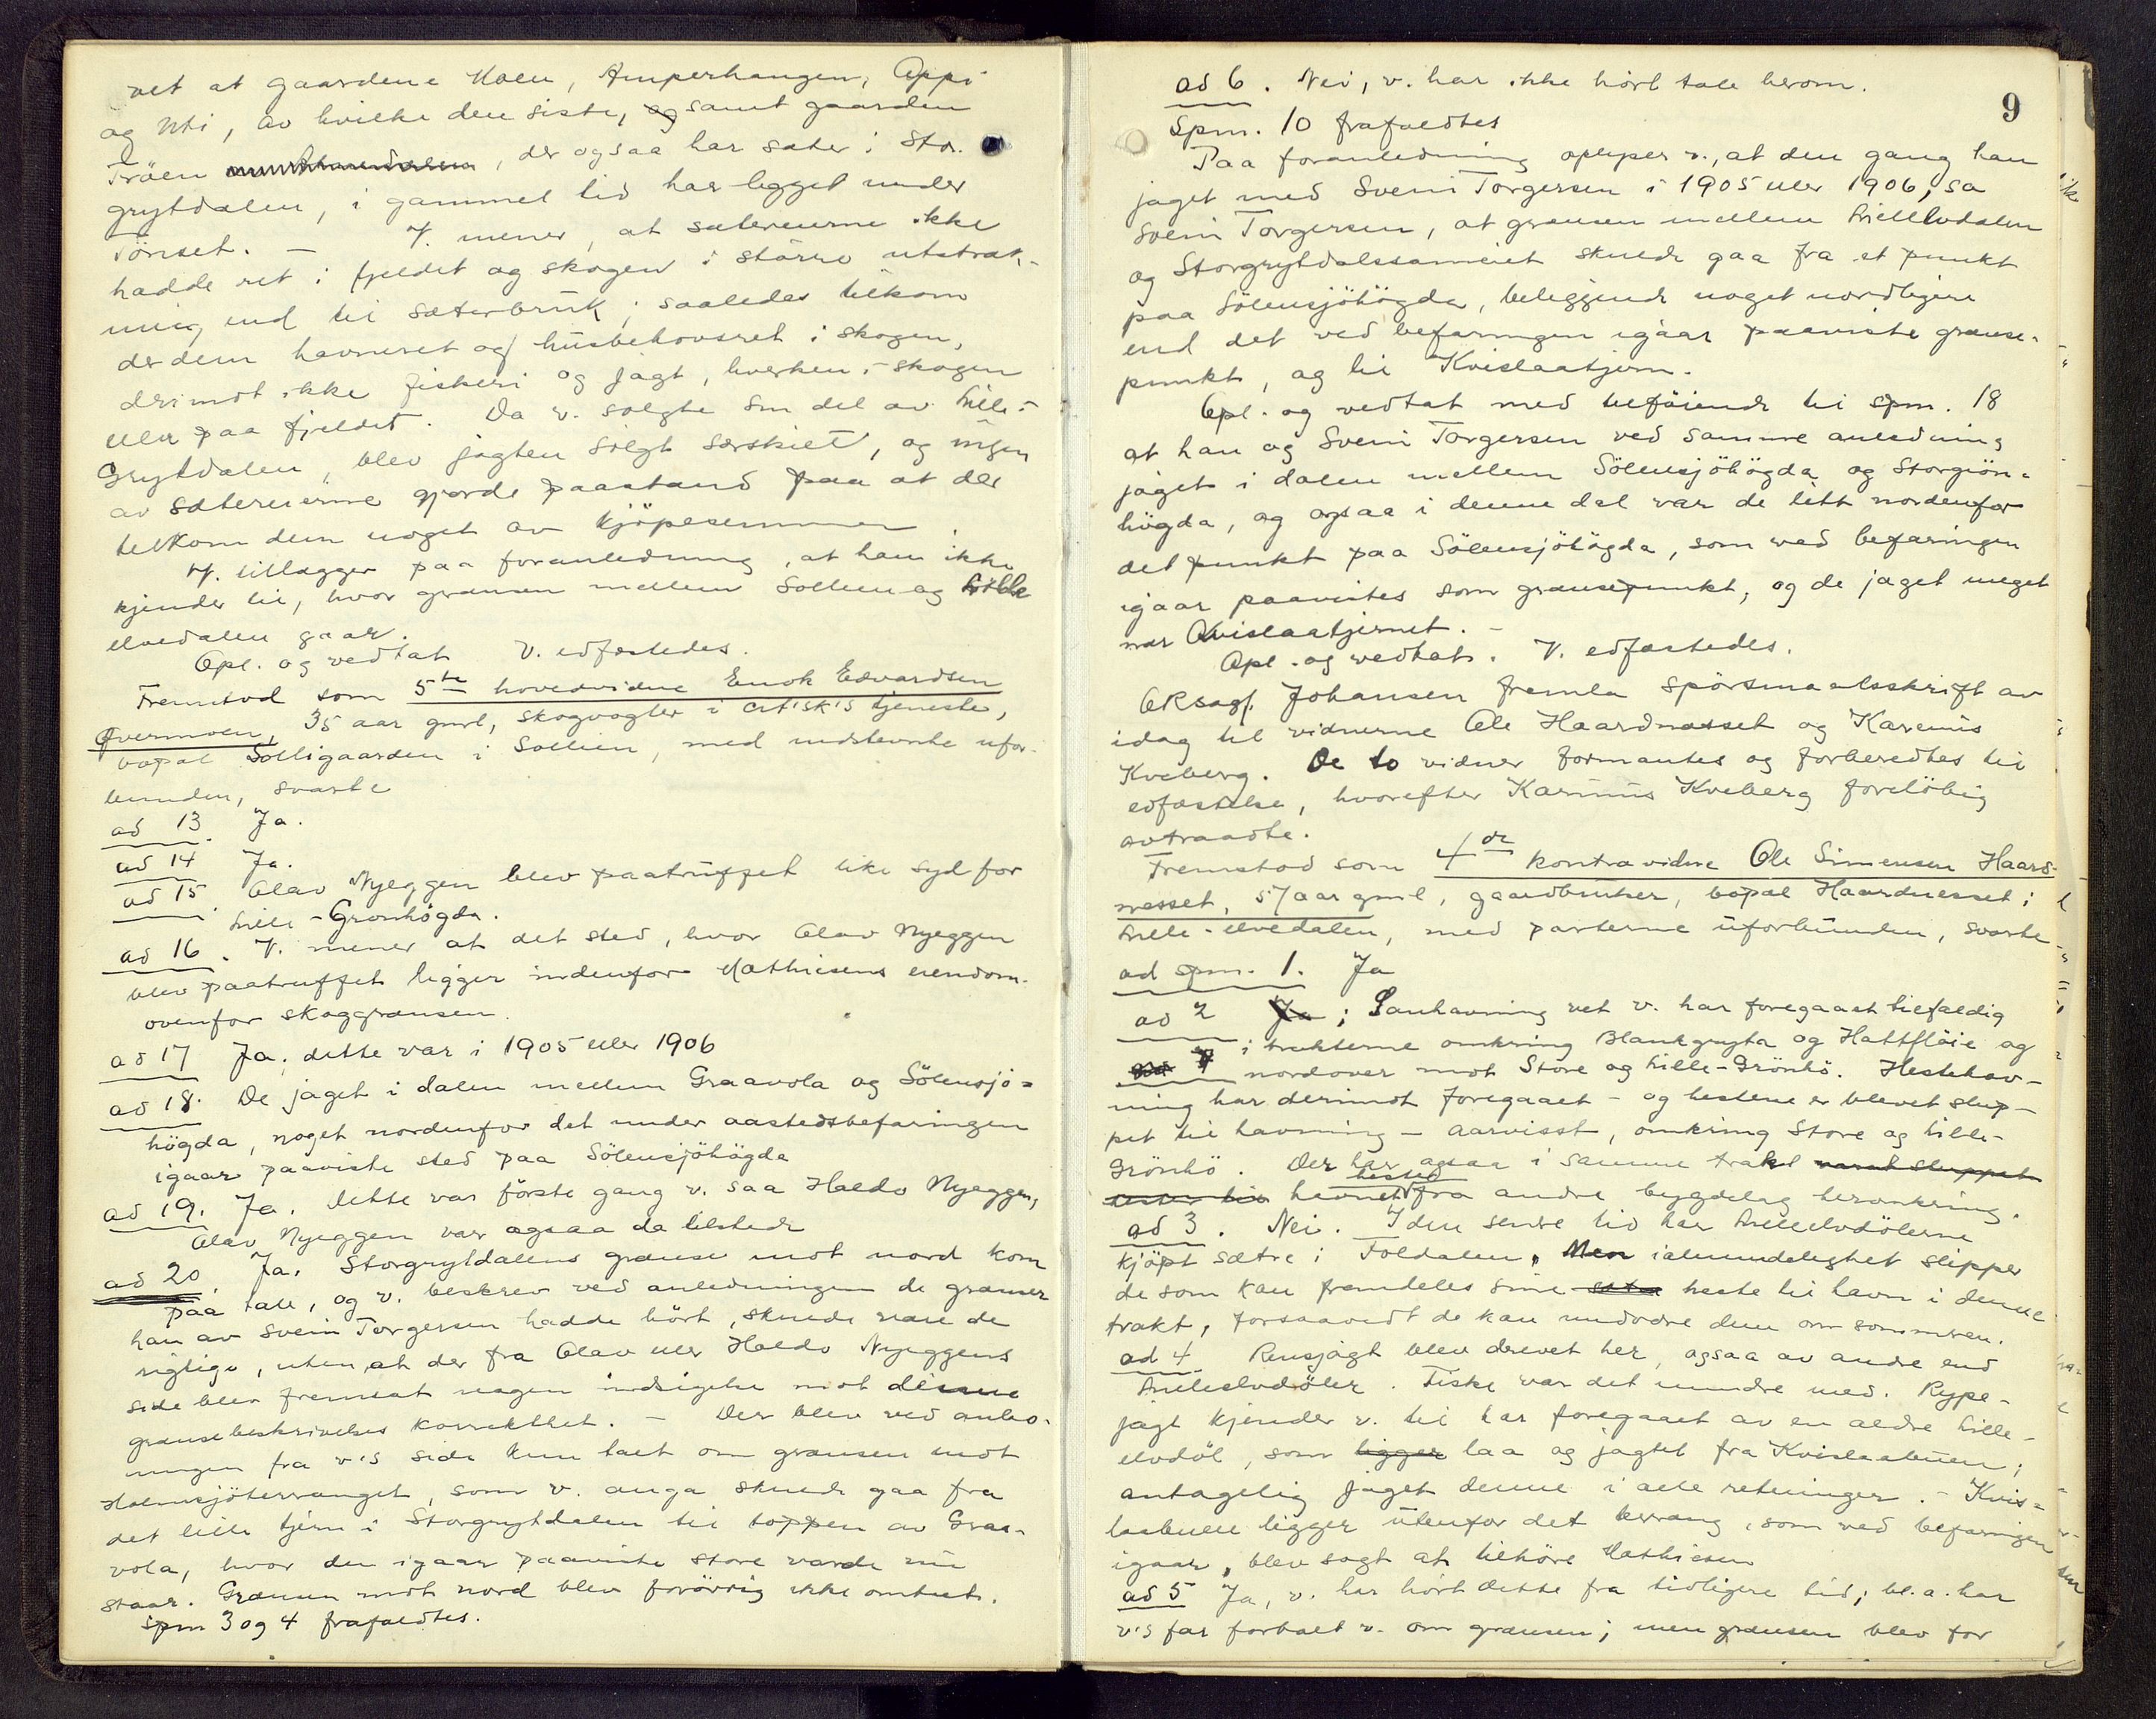 vet at gaardene Moen, Amperhaugen, Oppi
og Uti, av hvilke den siste, og samt gaarden
Tröen, der ogsaa har sæter i Stor-
grytdalen, i gammel tid har ligget under
Tönset. — V. mener, at sætereierne ikke
hadde ret i fjeldet og skogen i större utstræk-
ning end til sæterbruk; saaledes tilkom
der dem havneret og husbehovsret i skogen,
derimot ikke fiskeri og jagt, hverken i skogen
eller paa fjeldet. Da v. solgte sin del av Lille-
Grytdalen, blev jagten solgt særskilt, og ingen
av sætereierne gjorde paastand paa at der
tilkom dem noget av kjöpesummen.
V. tillægger paa foranledning, at han ikke
kjender til, hvor grænsen mellem Sollien og Lille
elvedalen gaar.
Opl. og vedtat V. edfæstedes.
Fremstod som 5te hovedvidne Enok Edvardsen
Övermoen, 35 aar gml, skogvogter i cit'sk's tjeneste,
bopæl Solligaarden i Sollien, med indstevnte ufor-
bunden, svarte
ad 13. Ja.
ad 14 Ja.
ad 15. Olav Nyeggen blev paatruffet like syd for
Lille-Grönhögda.
ad 16. V. mener at det sted, hvor Olav Nyeggen
blev paatruffet ligger indenfor Mathiesens eiendom.
ovenfor skoggrænsen.
ad 17 Ja; dette var i 1905 eller 1906
ad 18. De jaget i dalen mellem Graavola og Sölensjö=
högda, noget nordenfor det under aastedsbefaringen
igaar paaviste sted paa Sölensjöhögda
ad 19. Ja. Dette var förste gang v. saa Haldo Nyeggen,
Olav Nyeggen var ogsaa da tilstede
ad 20. Ja. Storgrytdalens grænse mot nord kom
paa tale, og v. beskrev ved anledningen de grænser
han av Svein Torgersen hadde hört, skulde være de
rigtige, uten at der fra Olav eller Haldo Nyeggens
side blev fremsat nogen indsigelse mot denne
grænsebeskrivelses korrekthet. — Der blev ved anled-
ningen fra v's side kun talt om grænsen mot
Holmsjöterrænget, som v. anga skulde gaa fra
det lille tjern i Storgrytdalen til toppen av Graa-
vola, hvor den igaar paaviste store varde nu
staar. Grænsen mot nord blev forövrig ikke omtalt.
Spm 3 og 4 frafaldtes.
9
ad 6. Nei, v. har ikke hört tale herom.
Spm. 10 frafaldtes
Paa foranledning oplyser v., at den gang han
jaget med Svein Torgersen i 1905 eller 1906, sa
Svein Torgersen, at grænsen mellem Lilleelvdalen
og Storgrytdalssameiet skulde gaa fra et punkt
paa Sölensjöhögda, beliggende noget nordligere
end det ved befaringen igaar paaviste grænse-
punkt, og til Kvislaatjern.
Opl. og vedtat med tilföiende til spm. 18
at han og Svein Torgersen ved samme anledning
jaget i dalen mellem Sölensjöhögda og Storgrön-
högda, og ogsaa i denne dal var de litt nordenfor
det punkt paa Sölensjöhögda, som ved befaringen
igaar paavistes som grænsepunkt, og de jaget meget
nær Kvislaatjernet. —
Opl. og vedtat. V. edfæstedes.
ORsagf. Johansen fremla spörsmaalsskrift av
idag til vidnerne Ole Haardnæsset og Karenus
Kveberg. De to vidner formantes og forberedtes til
edfæstelse, hvorefter Karenus Kveberg forelöbig
avtraadte.
Fremstod som 4de kontravidne Ole Simensen Haard-
næsset, 57 aar gml, gaardbruker, bopæl Haardnesset i
Lille-elvedalen, med parterne uforbunden, svarte
ad spm. 1. Ja
ad 2 Ja; Sauhavning vet v. har foregaaet tilfældig
i trakterne omkring Blankgryta og Hattflöie og
nordover mot Store og Lille-Grönhö. Hestehav-
ning har derimot foregaaet — og hestene er blevet slup-
pet til havning — aarvisst, omkring Store og Lille-
Grönhö. Der har ogsaa i samme trakt været sluppet
havnet hester fra andre bygdelag heromkring.
ad 3. Nei. I den senere tid har Lilleelvdölerne
kjöpt sætre i Foldalen. Men i almindelighet slipper
de som kan fremdeles sine heste til havn i denne
trakt, forsaavidt de kan undvære dem om sommeren.
ad 4 Rensjagt blev drevet her, ogsaa av andre end
Lilleelvdöler. Fiske var det mindre med. Rype-
jagt kjender v. til har foregaaet av en ældre Lille-
elvdöl, som ligger laa og jagtet fra Kvislaabuen;
antagelig jaget denne i alle retninger. — Kvis-
laabuen ligger utenfor det terræng, som ved befaringen
igaar, blev sagt at tilhöre Mathiesen
ad 5 Ja, v. har hört dette fra tidligere tid; bl.a. har
v's far fortalt v. om grænsen; men grænsen blev for